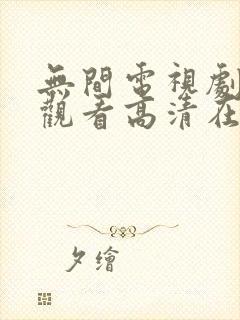 無間電視劇
觀看高清在
夕繪